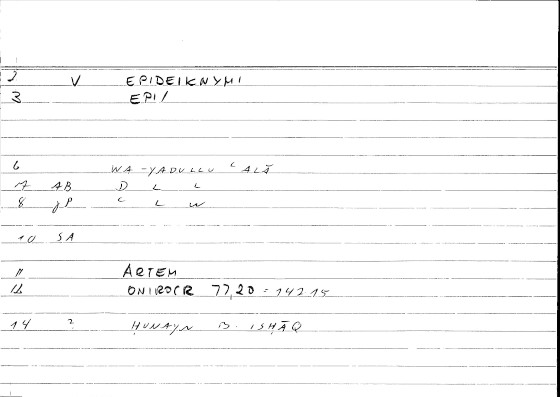 2 V EPIDEIKNYMI
3 EPI/
6 WA-YADULLU ʿALĀ
7 AB D L L
8 JP ʿ L W
10 SA
11 ARTEM
12 ONIROCR 77,20 = 142 15
14 ? ḤUNAYN B. ISḤĀQ